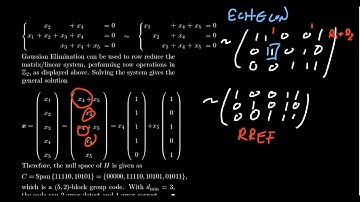 ECHELON
x2 + x4 = 0
x1 + x2 + x3 + x4 = 0
x3 + x4 + x5 = 0
~
x1 + x4 + x5 = 0
x2 + x4 = 0
x3 + x4 + x5 = 0
Gaussian Elimination can be used to row reduce the
matrix/linear system, performing row operations in
ℤ2, as displayed above. Solving the system gives the
general solution
x = (x1 x2 x3 x4 x5) = (x4 + x5 x4 x4 + x5 x4 x5) = x4 (1 1 1 1 0) + x5 (1 0 1 0 1)
Therefore, the null space of H is given as
C = Span {11110, 10101} = {00000, 11110, 10101, 01011},
which is a (5, 2)-block group code. With dmin = 3,
~
0 1 0 1 0
0 0 1 1 1
~
1 0 0 1 1
0 1 0 1 0
0 0 1 1 1
RREF